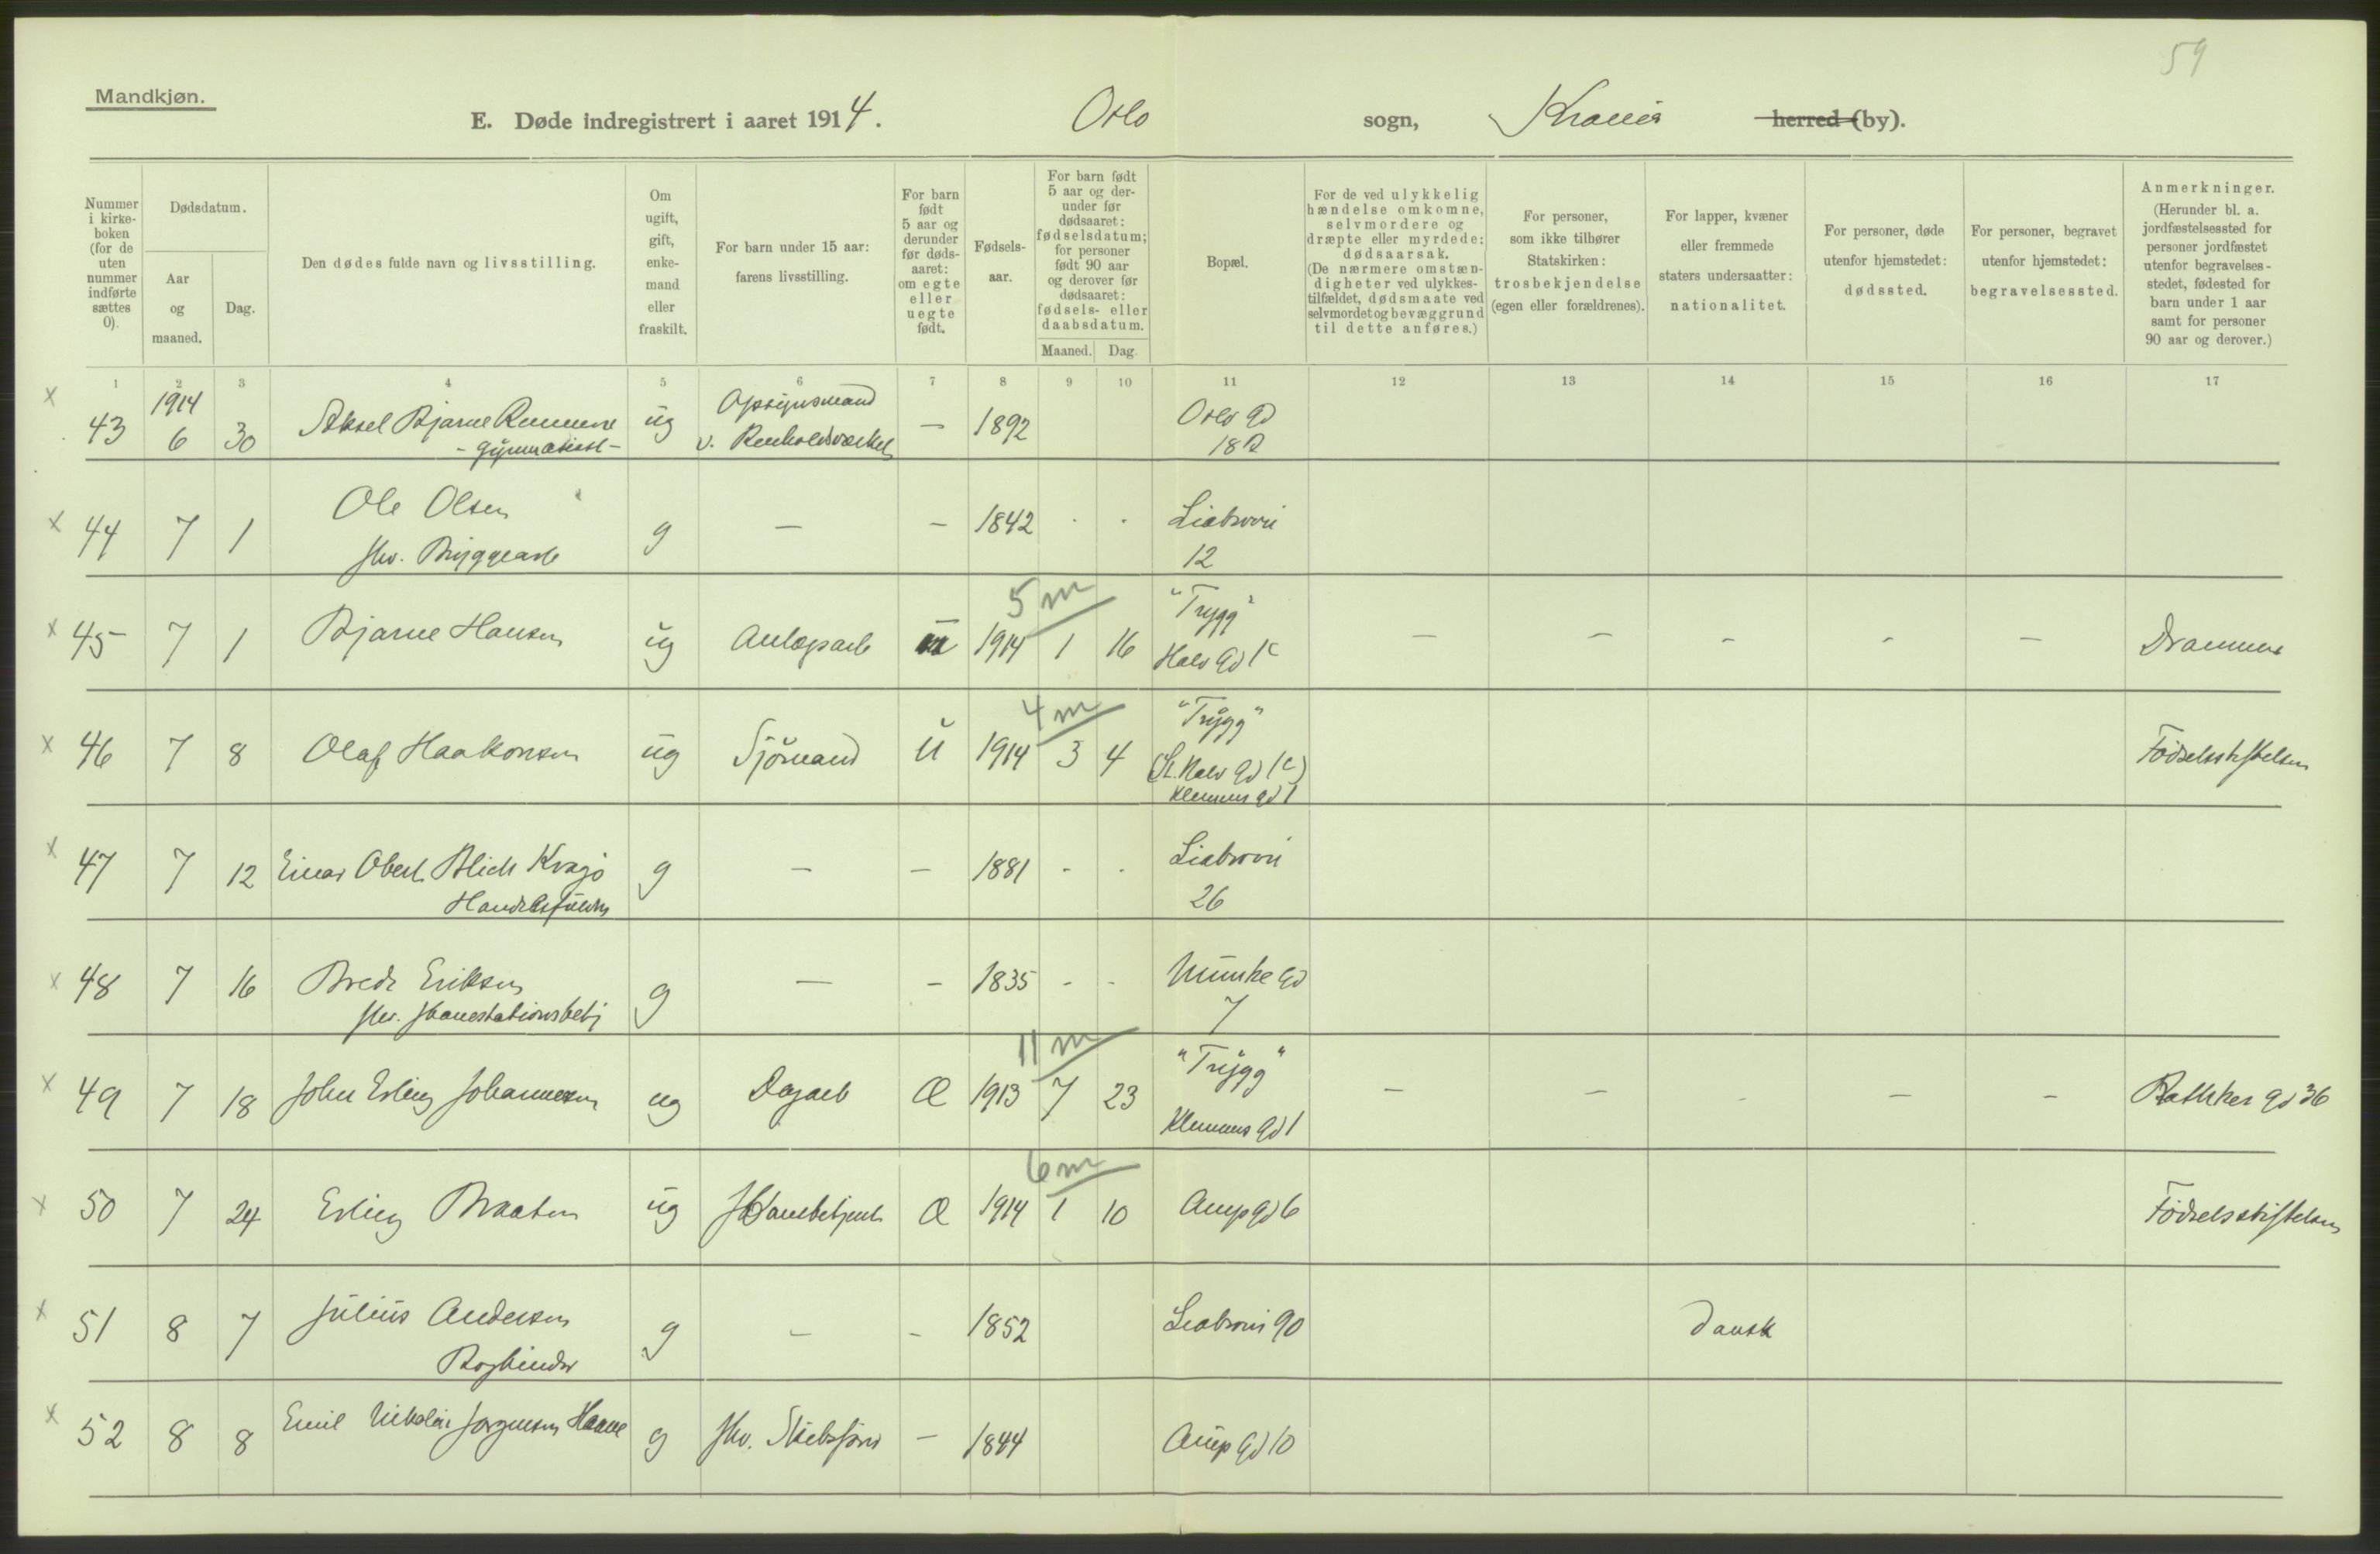 59
Mandkjøn.
E. Døde indregistrert i aaret 1914. Oslo sogn, Krania herred (by).
Nummer i kirke-boken (for de uten nummer indførte sættes 0).
Dødsdatum.
Aar og maaned.
Dag.
Den dødes fulde navn og livsstilling.
Om ugift, gift, enke-mand eller fraskilt.
For barn under 15 aar: farens livsstilling.
For barn født 5 aar og derunder før døds-aaret: om egte eller uegte født.
Fødsels-aar.
For barn født 5 aar og der-under før dødsaaret: fødselsdatum; for personer født 90 aar og derover før dødsaaret: fødsels- eller daabsdatum.
Maaned. Dag.
Bopæl.
For de ved ulykkelig hændelse omkomne, selvmordere og dræpte eller myrdede: dødsaarsak. (De nærmere omstæn-digheter ved ulykkes-tilfældet, dødsmaate ved selvmordet og bevæggrund til dette anføres.)
For personer, som ikke tilhører Statskirken: trosbekjendelse (egen eller forældrenes).
For lapper, kvæner eller fremmede staters undersaatter: nationalitet.
For personer, døde utenfor hjemstedet: dødssted.
For personer, begravet utenfor hjemstedet: begravelsessted.
Anmerkninger. (Herunder bl. a. jordfæstelsessted for personer jordfæstet utenfor begravelses-stedet, fødested for barn under 1 aar samt for personer 90 aar og derover.)
1 2 3 4 5 6 7 8 9 10 11 12 13 14 15 16 17
x 43 1914 6 30 Aksel Bjarne ug Opsynsmand — 1892 Oslo gd
- gymnasiast - v. Renholdsværket 18 B
x 44 7 1 Ole Olsen g — — 1842 . . Liabrovn
fhv. Bryggearb 12
5 m
x 45 7 1 Bjarne Hansen ug Anlægsarb u 1914 1 16 "Trygg" — — - - — Drammen
Halv gd 1c
4 m
x 46 7 8 Olaf Haakonsen ug Sjömand U 1914 3 4 "Trygg" Födselsstiftelsen
(St. Halv gd 1c)
Klemens gd 1
x 47 7 12 Einar Obert Blich Kragö g — — 1881 - . Liabrovn
26
x 48 7 16 Brede Eriksen g — - 1835 - - Munke gd
7
11 m
x 49 7 18 John Erling Johannesen ug Dagarb Æ 1913 7 23 "Trygg" — — - — — Rathkes gd 36
Klemens gd 1
6 m
x 50 7 24 Erling Braaten ug Æ 1914 1 10 Arup gd 6 Födselsstiftelsen
x 51 8 7 Julius Andersen g — - 1852 Liabrovn 90 dansk
Bogbinder
x 52 8 8 Emil Nikolai Jørgensen g fhv. — 1844 Arup gd 10